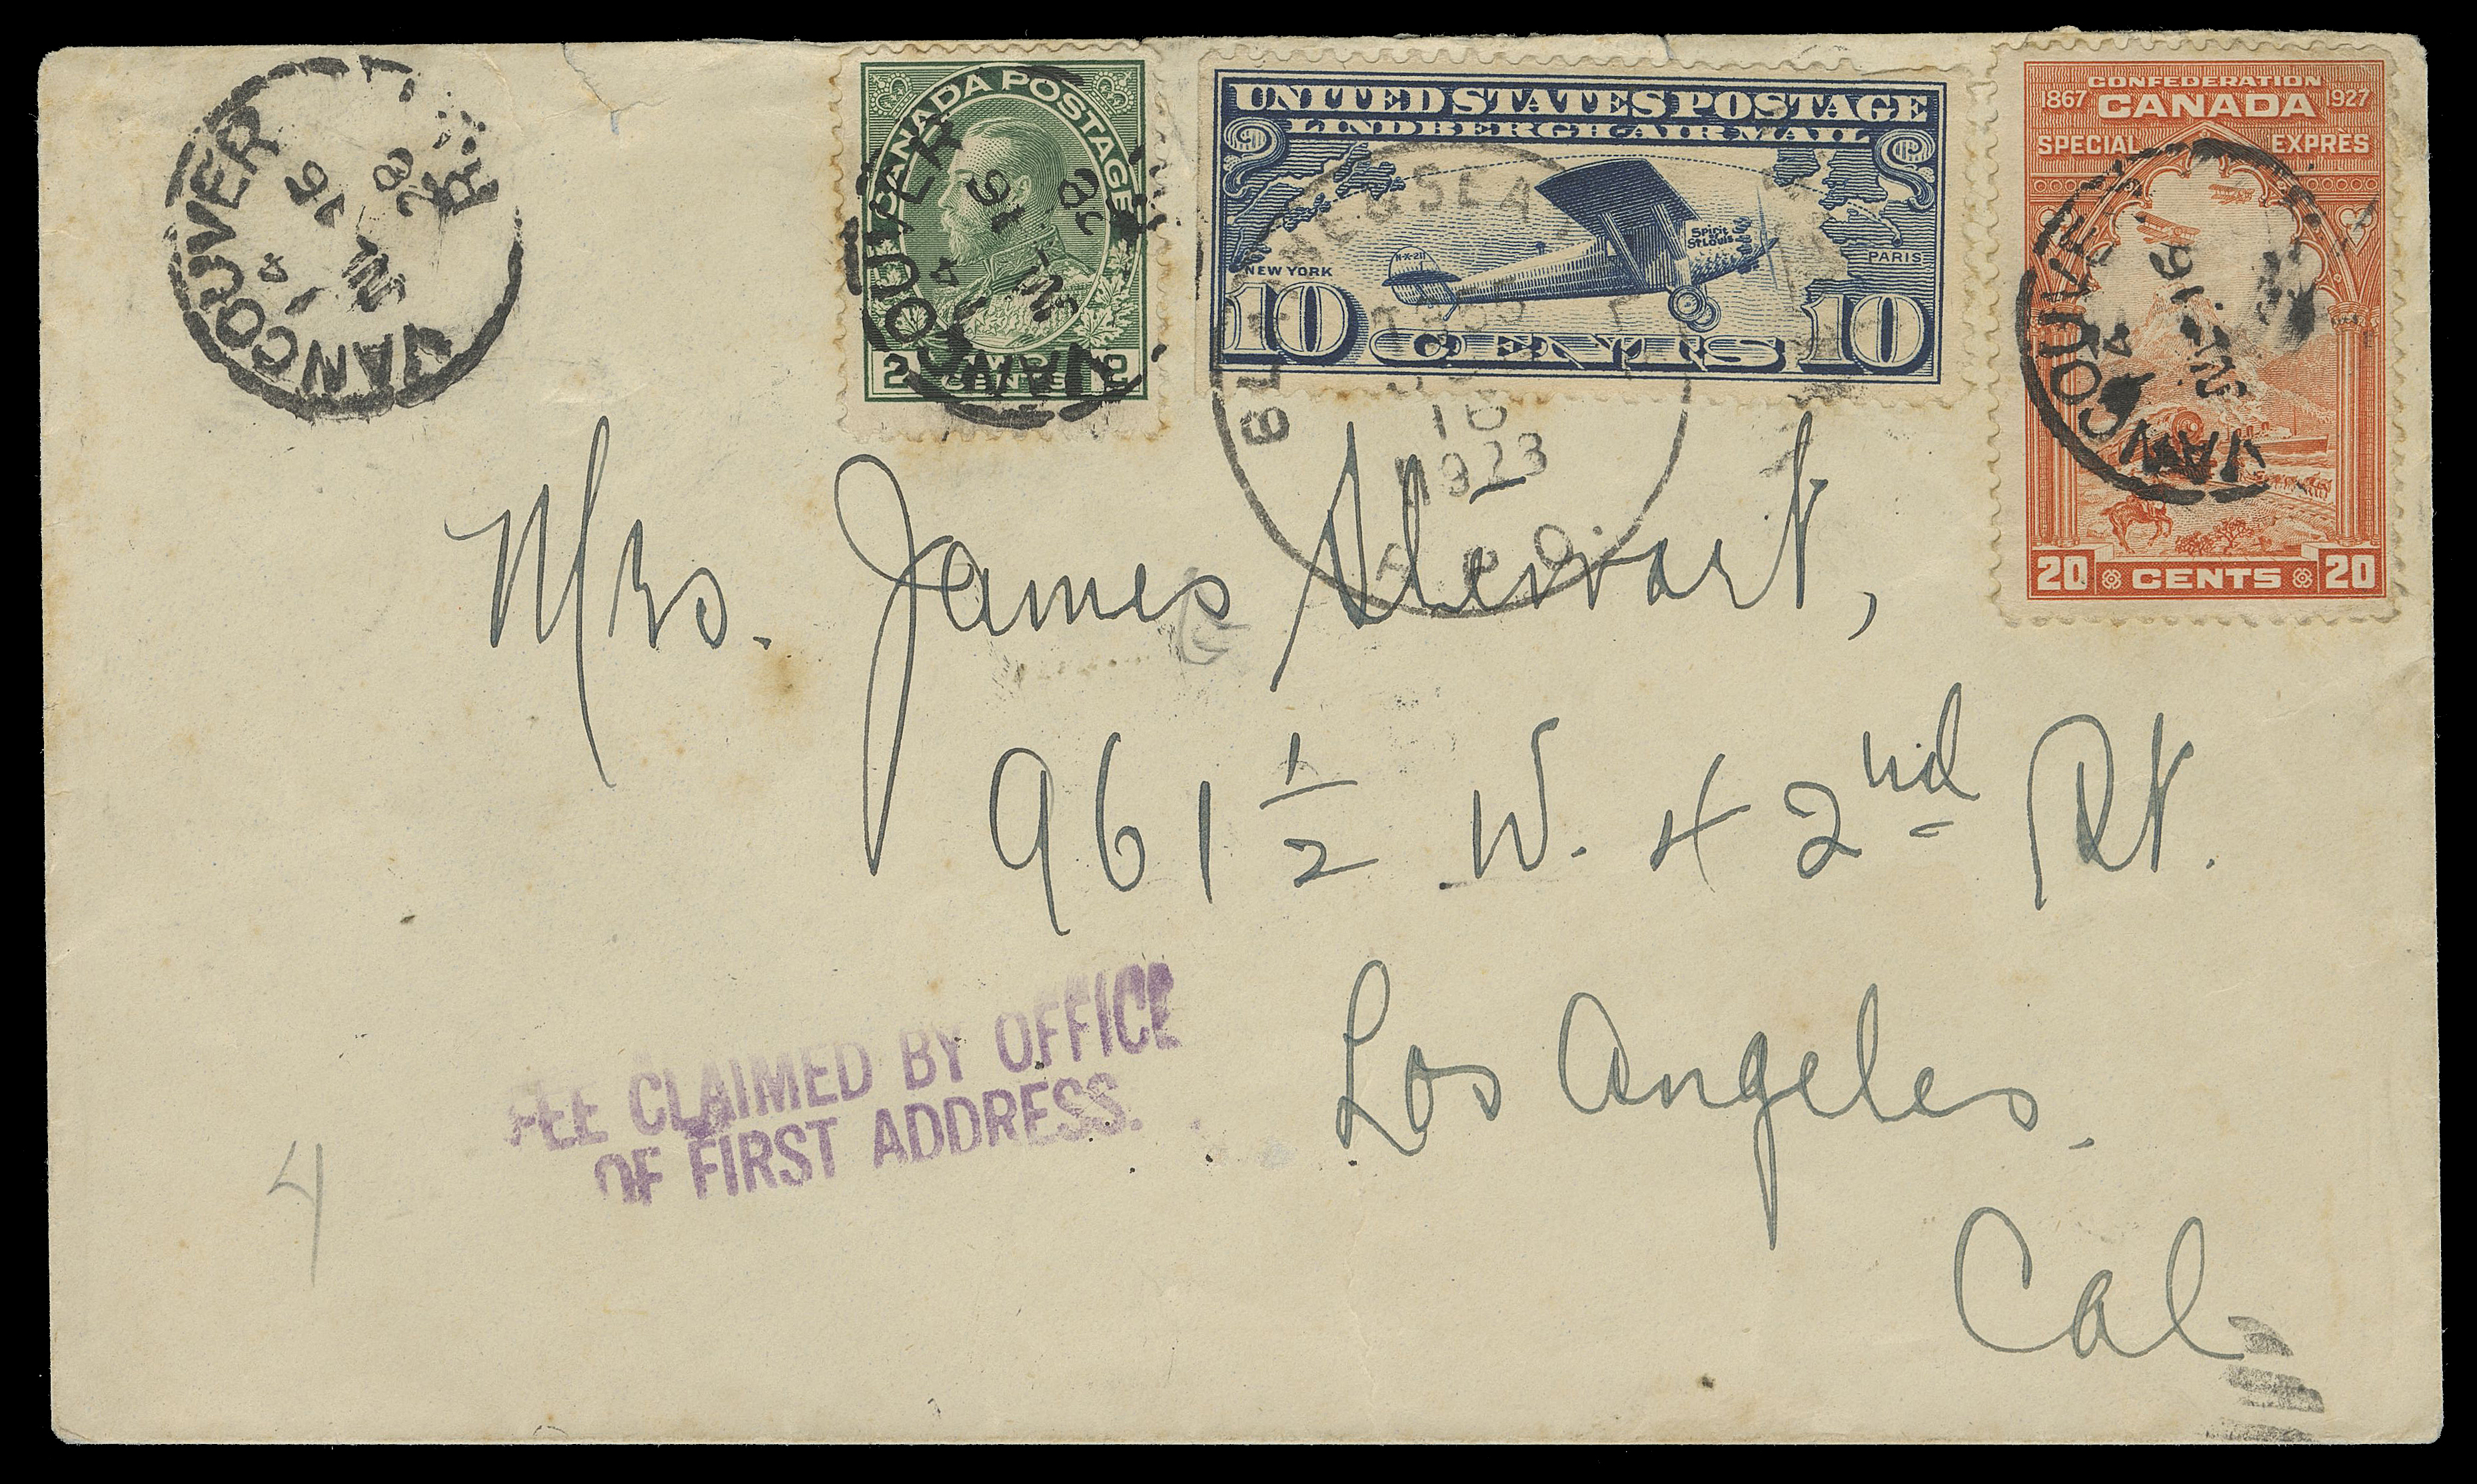 VANCOUVER
16
4
28
CANADA POSTAGE
2 CENTS 2
VANCOUVER
16
4
28
UNITED STATES POSTAGE
LINDBERGH AIR MAIL
Spirit
St Louis
N-X-211
NEW YORK
PARIS
10 CENTS 10
10
1923
CONFEDERATION
1867 CANADA 1927
SPECIAL EXPRÈS
16
4
20 CENTS 20
Mrs. James Stewart,
961 1/2 W. 42nd St.
Los Angeles.
Cal
FEE CLAIMED BY OFFICE
OF FIRST ADDRESS.
4